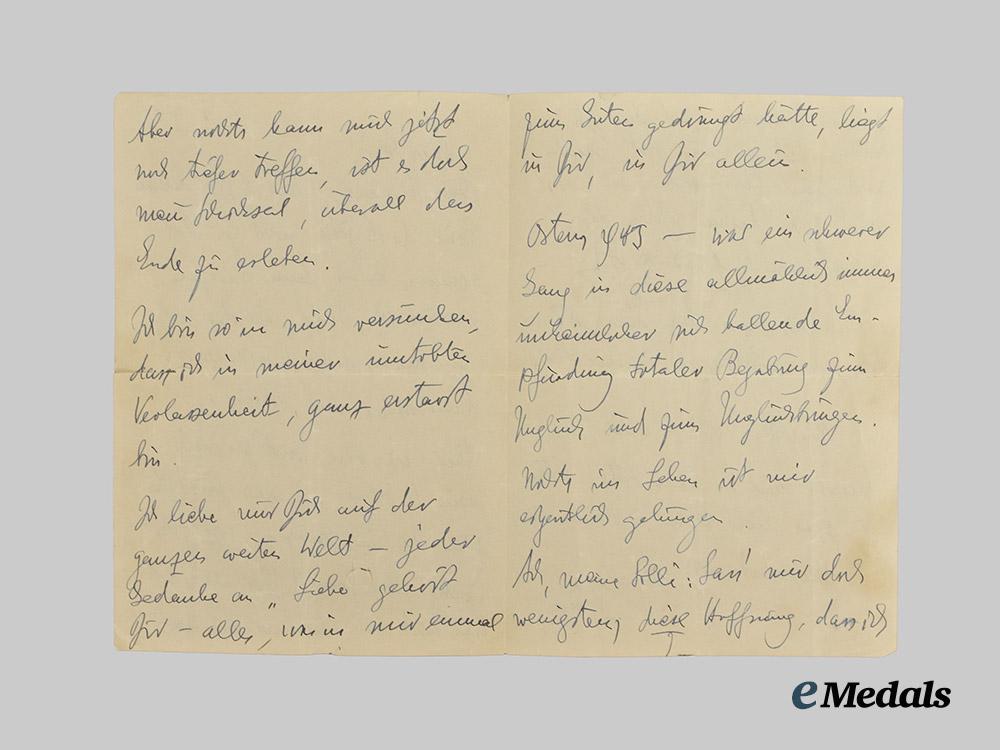 Aber nichts kann mich jetzt
noch tiefer treffen, ist es doch
mein Schicksal, überall das
Ende zu erleben.
Ich bin so in mich versunken,
dass ich in meiner umtobten
Verlassenheit, ganz erstarrt
bin.
Ich liebe nur Dich auf der
ganzen weiten Welt – jeder
Gedanke an „Liebe" gehört
Dir – alles, was in mir einmal
zum Guten gedrängt hätte, liegt
in Dir, in Dir allein.
Ostern 1945 — war ein schwerer
Gang in diese allmählich immer
unheimlicher sich ballende Em-
pfindung totaler Begabung zum
Unglück und zum Unglückbringen.
Nichts im Leben ist mir
eigentlich gelungen.
Ach, meine : Lass' mir doch
wenigstens diese Hoffnung, dass ich
eMedals